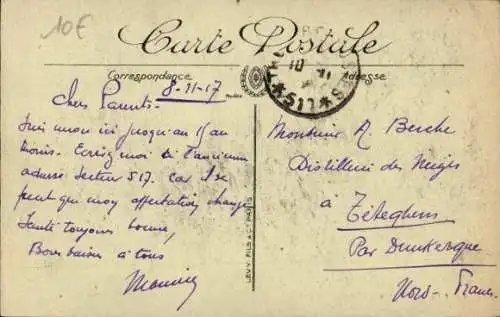 10€
Carte Postale
Correspondance
Adresse
8-11-17
Chers Parents.
Suis encore ici jusqu'au 15 au
moins. Ecrivez moi à l'ancienne
adresse Secteur 517. Car il se
peut que mon affectation change
Santé toujours bonne,
Bons baisers à tous
Maurice
10 11
*517*
Monsieur A. Berche
Distillerie des Neiges
à Téteghem
Par Dunkerque
Nord - France
LEVY FILS & Cie PARIS